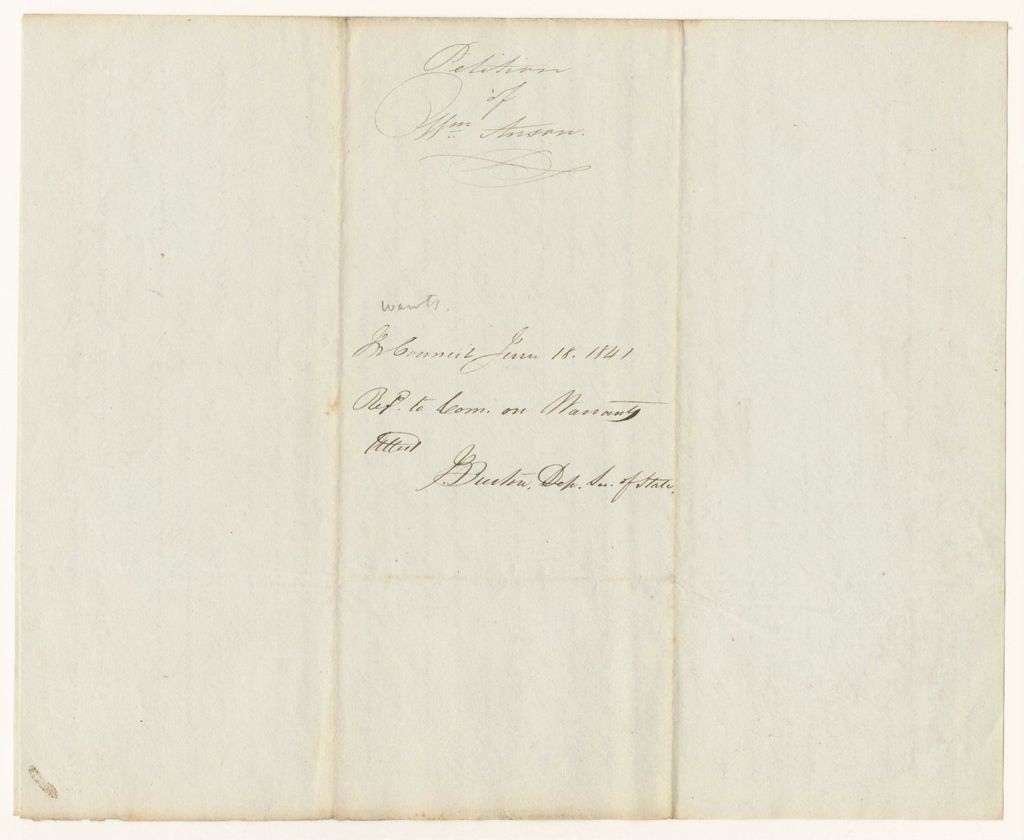 Petition
of
Wm Anson.
warts.
In Council June 18. 1841
Refd. to Com. on Warrants
Attest
J Burton, Dep. Sec. of State.